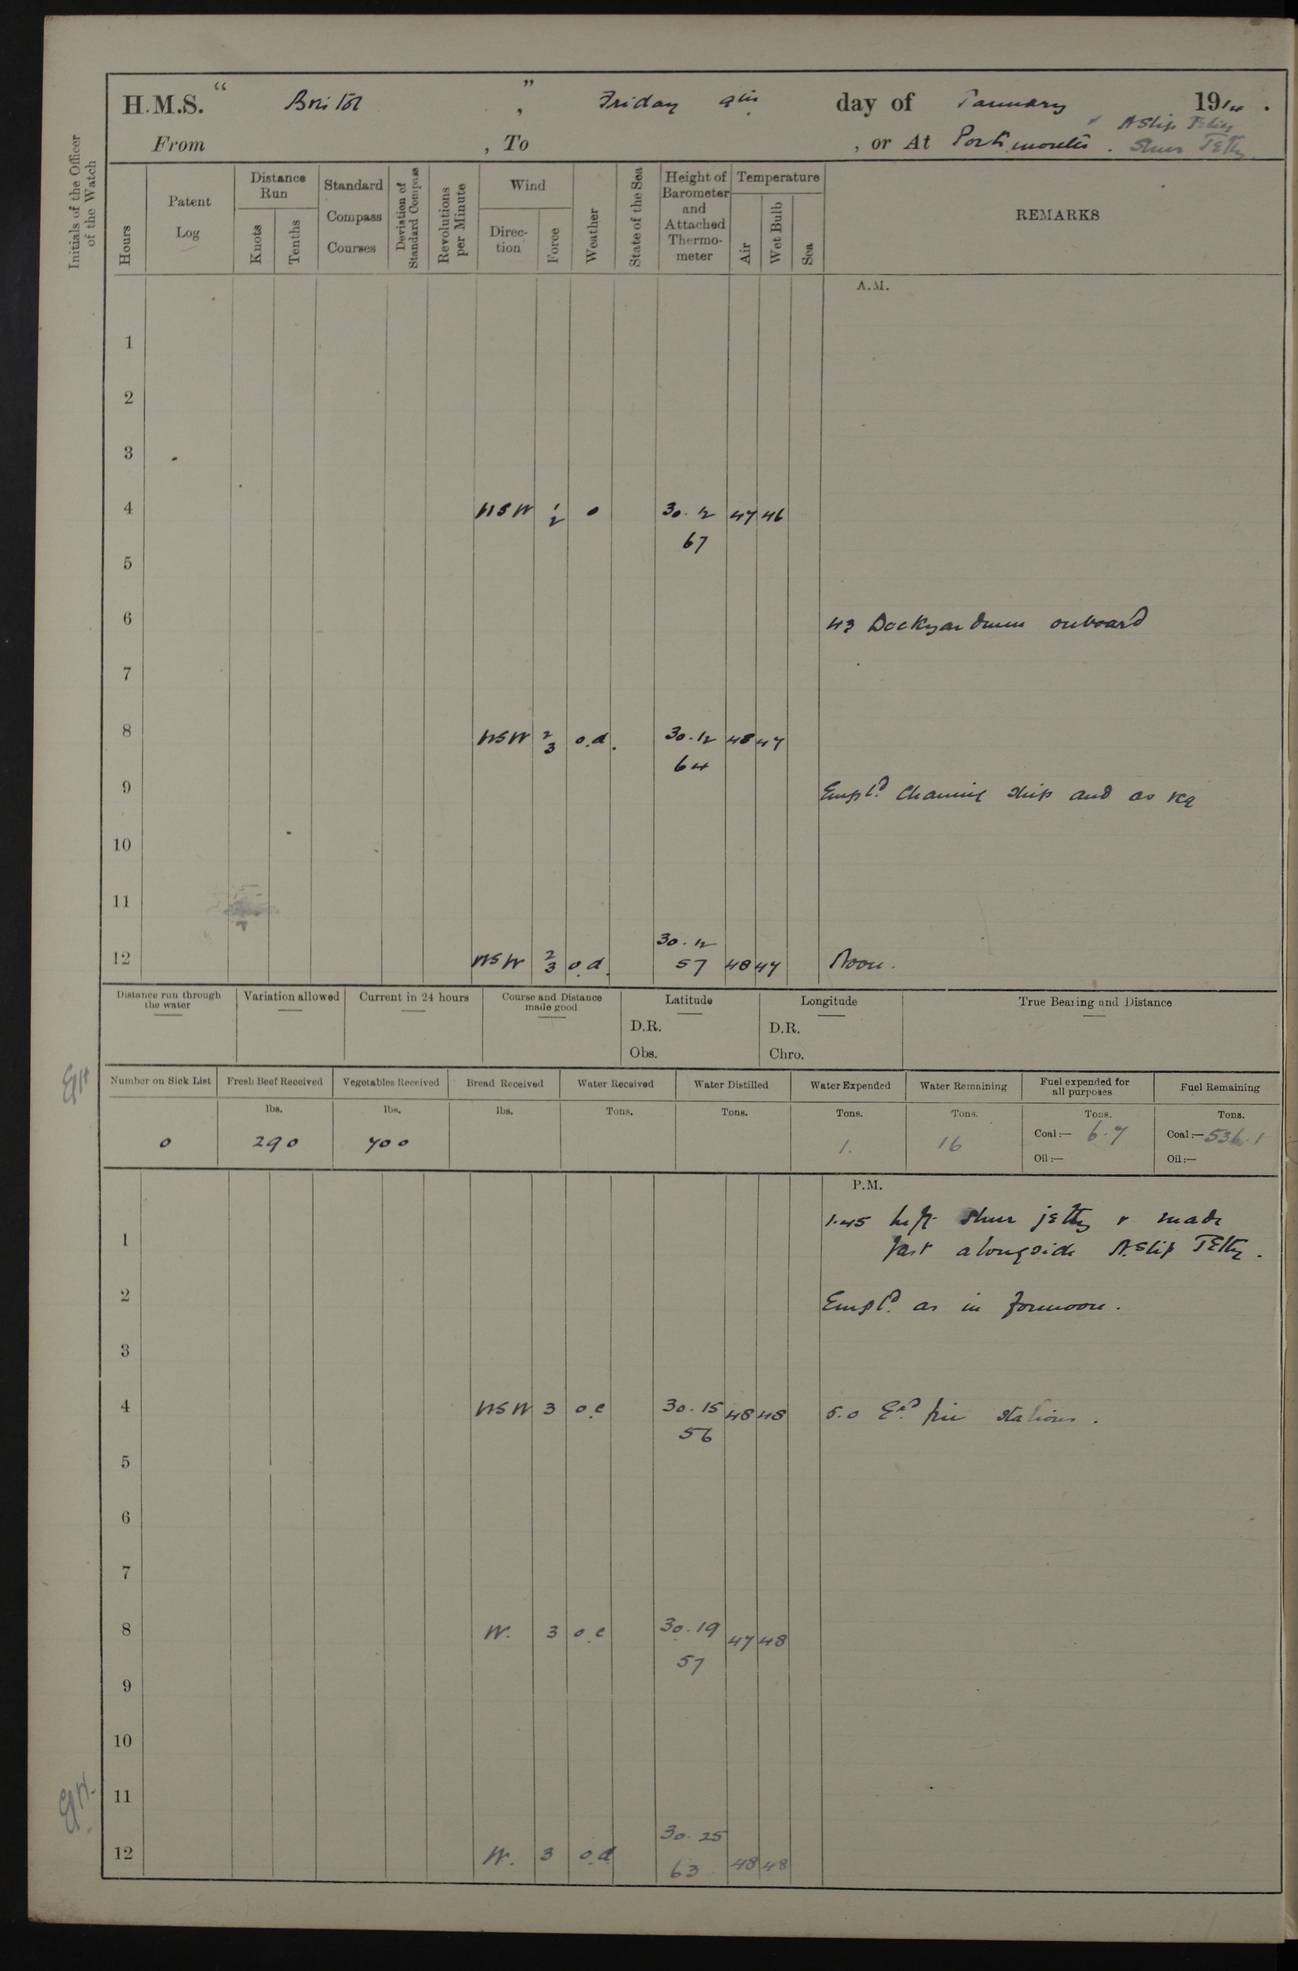 H.M.S. " Bristol ", Friday 9th day of January 1914.
From , To , or At Portsmouth. N Slip Jetty
Sheer Jetty.
Initials of the Officer of the Watch
Hours
Patent Log
Distance Run
Knots
Tenths
Standard Compass Courses
Deviation of Standard Compass
Revolutions per Minute
Wind
Direction
Force
Weather
State of the Sea
Height of Barometer and Attached Thermometer
Temperature
Air
Wet Bulb
Sea
REMARKS
A.M.
1
2
3
4 WSW 1/2 o 30.12 47 46
67
5
6 43 Dockyardmen onboard
7
8 WSW 2/3 o.d. 30.12 48 47
64
9 Empld. cleaning ship and as req
10
11
30.12
12 WSW 2/3 o.d. 57 48 47 Noon.
Distance run through the water
Variation allowed
Current in 24 hours
Course and Distance made good
Latitude
D.R.
Obs.
Longitude
D.R.
Chro.
True Bearing and Distance
Number on Sick List Fresh Beef Received Vegetables Received Bread Received Water Received Water Distilled Water Expended Water Remaining Fuel expended for all purposes Fuel Remaining
lbs. lbs. lbs. Tons. Tons. Tons. Tons. Tons. Tons.
0 290 700 1. 16 Coal:— 6.7 Coal:— 536.1
Oil:— Oil:—
P.M.
1.45 Left Sheer jetty & made
1 fast alongside N. Slip Jetty.
2 Empld. as in forenoon.
3
4 WSW 3 o.c 30.15 48 48 5.0 Ed. fire stations.
56
5
6
7
8 W. 3 o.c 30.19 47 48
57
9
10
11
30.25
12 W. 3 o.d 63 48 48